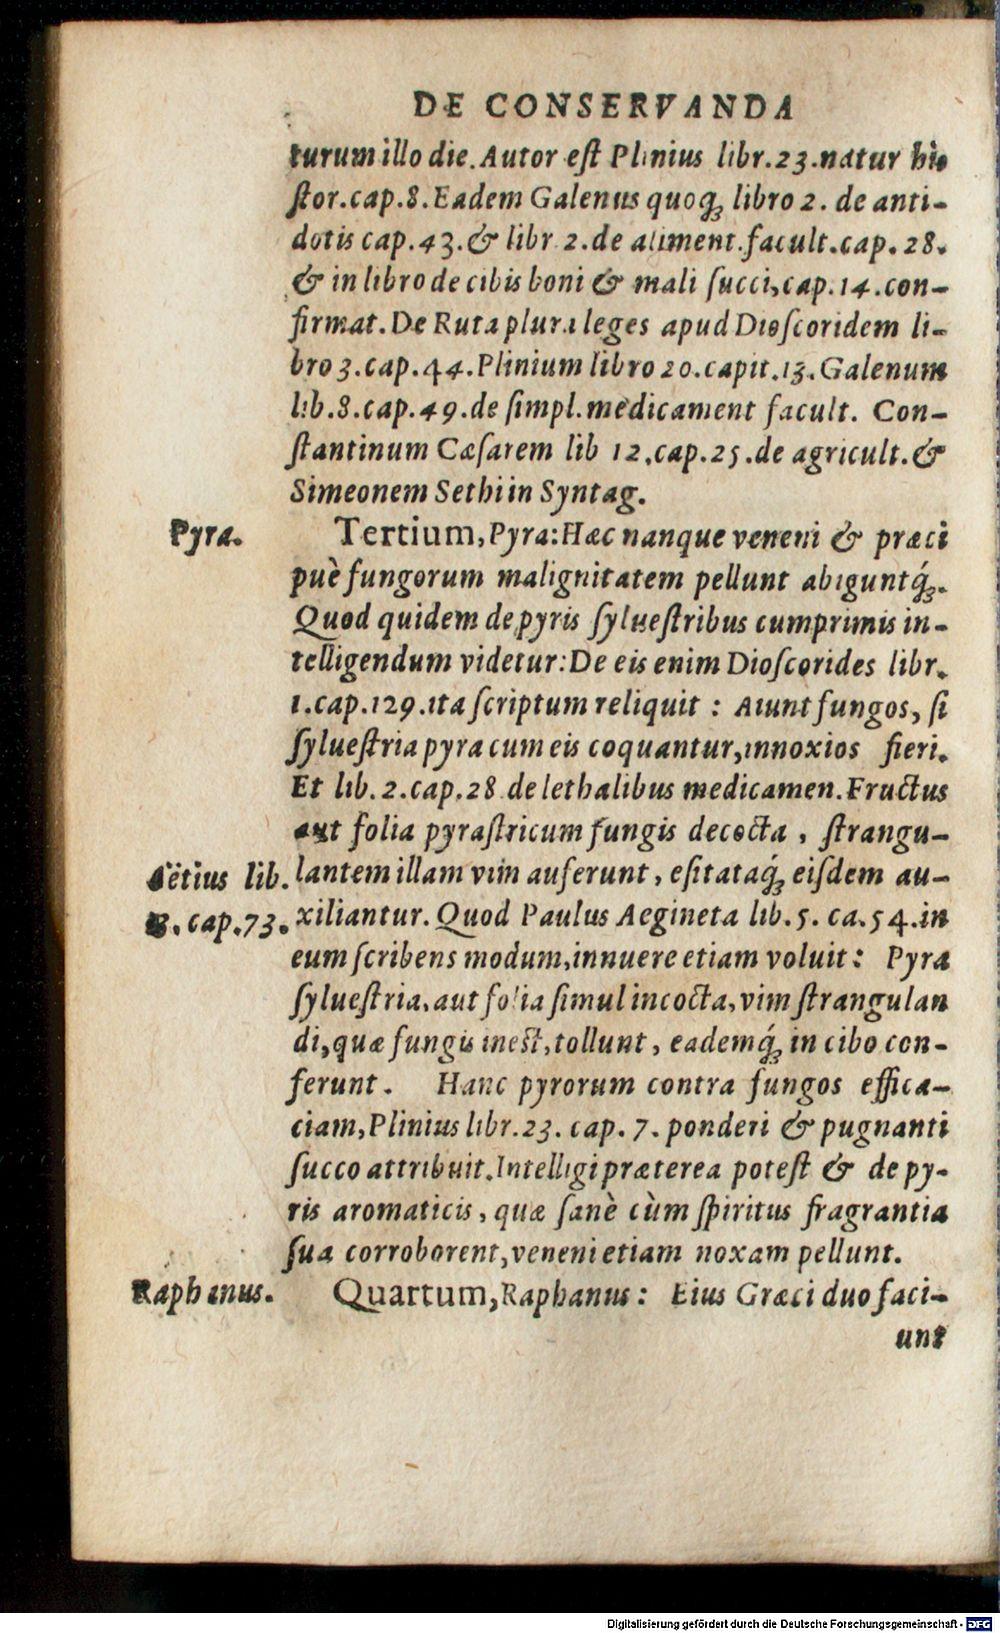 DE CONSERVANDA
turum illo die. Autor est Plinius libr. 23. natur hi-
ſtor. cap. 8. Eadem Galenus quoq; libro 2. de anti-
dotis cap. 43. & libr 2. de aliment. facult. cap. 28.
& in libro de cibis boni & mali ſucci, cap. 14. con-
firmat. De Ruta plura leges apud Dioſcoridem li-
bro 3. cap. 44. Plinium libro 20. capit. 13. Galenum
lib. 8. cap. 49. de ſimpl. medicament facult. Con-
ſtantinum Cæſarem lib 12. cap. 25. de agricult. &
Simeonem Sethi in Syntag.
Pyra.
Tertium, Pyra: Hæc nanque veneni & præci
puè fungorum malignitatem pellunt abiguntq́;.
Quod quidem de pyris ſylueſtribus cumprimis in-
telligendum videtur: De eis enim Dioſcorides libr.
1. cap. 129. ita ſcriptum reliquit : Aiunt fungos, ſi
ſylueſtria pyra cum eis coquantur, innoxios fieri.
Et lib. 2. cap. 28 de lethalibus medicamen. Fructus
aut folia pyraſtricum fungis decocta , ſtrangu-
Aëtius lib.
lantem illam vim auferunt , eſitataq́; eiſdem au-
13. cap. 73.
xiliantur. Quod Paulus Aegineta lib. 5. ca. 54. in
eum ſcribens modum, innuere etiam voluit : Pyra
ſylueſtria, aut folia ſimul incocta, vim ſtrangulan
di, quæ fungis inest, tollunt , eademq́; in cibo con-
ferunt . Hanc pyrorum contra fungos effica-
ciam, Plinius libr. 23. cap. 7. ponderi & pugnanti
ſucco attribuit. Intelligi præterea poteſt & de py-
ris aromaticis , quæ ſanè cùm ſpiritus fragrantia
ſua corroborent, veneni etiam noxam pellunt.
Raphanus.
Quartum, Raphanus : Eius Græci duo faci-
unt
Digitalisierung gefördert durch die Deutsche Forschungsgemeinschaft - DFG